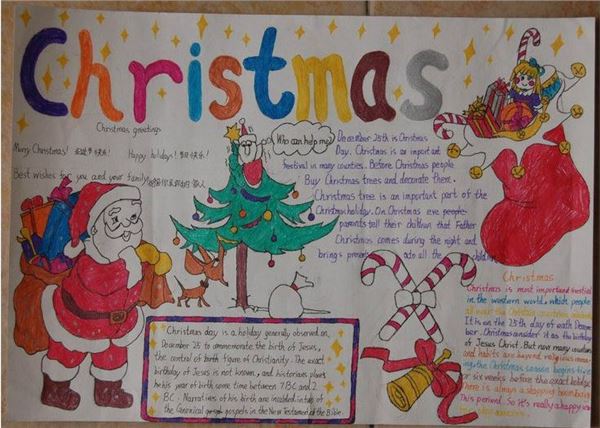 Christmas
Christmas greetings
Merry Christmas! 圣诞节快乐!
Happy holidays! 节日快乐!
Best wishes for you and your family
Who can help me?
December 25th is Christmas
Day. Christmas is an important
festival in many counties. Before Christmas people
Buy Christmas trees and decorate them.
Christmas tree is an important part of the
Christmas holiday. On Christmas eve people
parents tell their children that Father
Christmas comes during the night and
brings presents to all the children
Christmas day is a holiday generally observed on
December 25 to commemorate the birth of Jesus,
the central of birth figure of Christianity. The exact
birthday of Jesus is not known, and historians place
his year of birth some time between 7 BC and 2
BC. Narratives of his birth are included in two of
the Canonical gospels in the New Testament of the Bible.
Christmas
Christmas is most important festival
in the western world, which people
all over the Christian countries
It is on the 25th day of each Decem-
ber. Christmas consider it as the birthday
of Jesus Christ. But now many countries
and habits are beyond religious mean-
ing, the Christmas season begins five
or six weeks before the exact holiday.
There is always a shopping boom during
This period. So it's really a happy